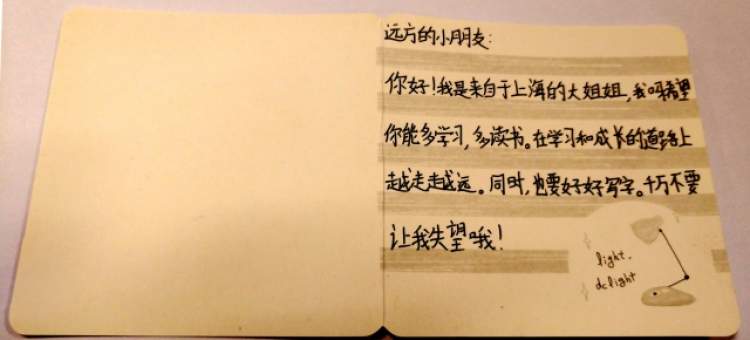 远方的小朋友:
你好!我是来自于上海的大姐姐,我希望
你能多学习,多读书。在学习和成长的道路上
越走越远。同时,也要好好写字。千万不要
让我失望哦!
light.
delight